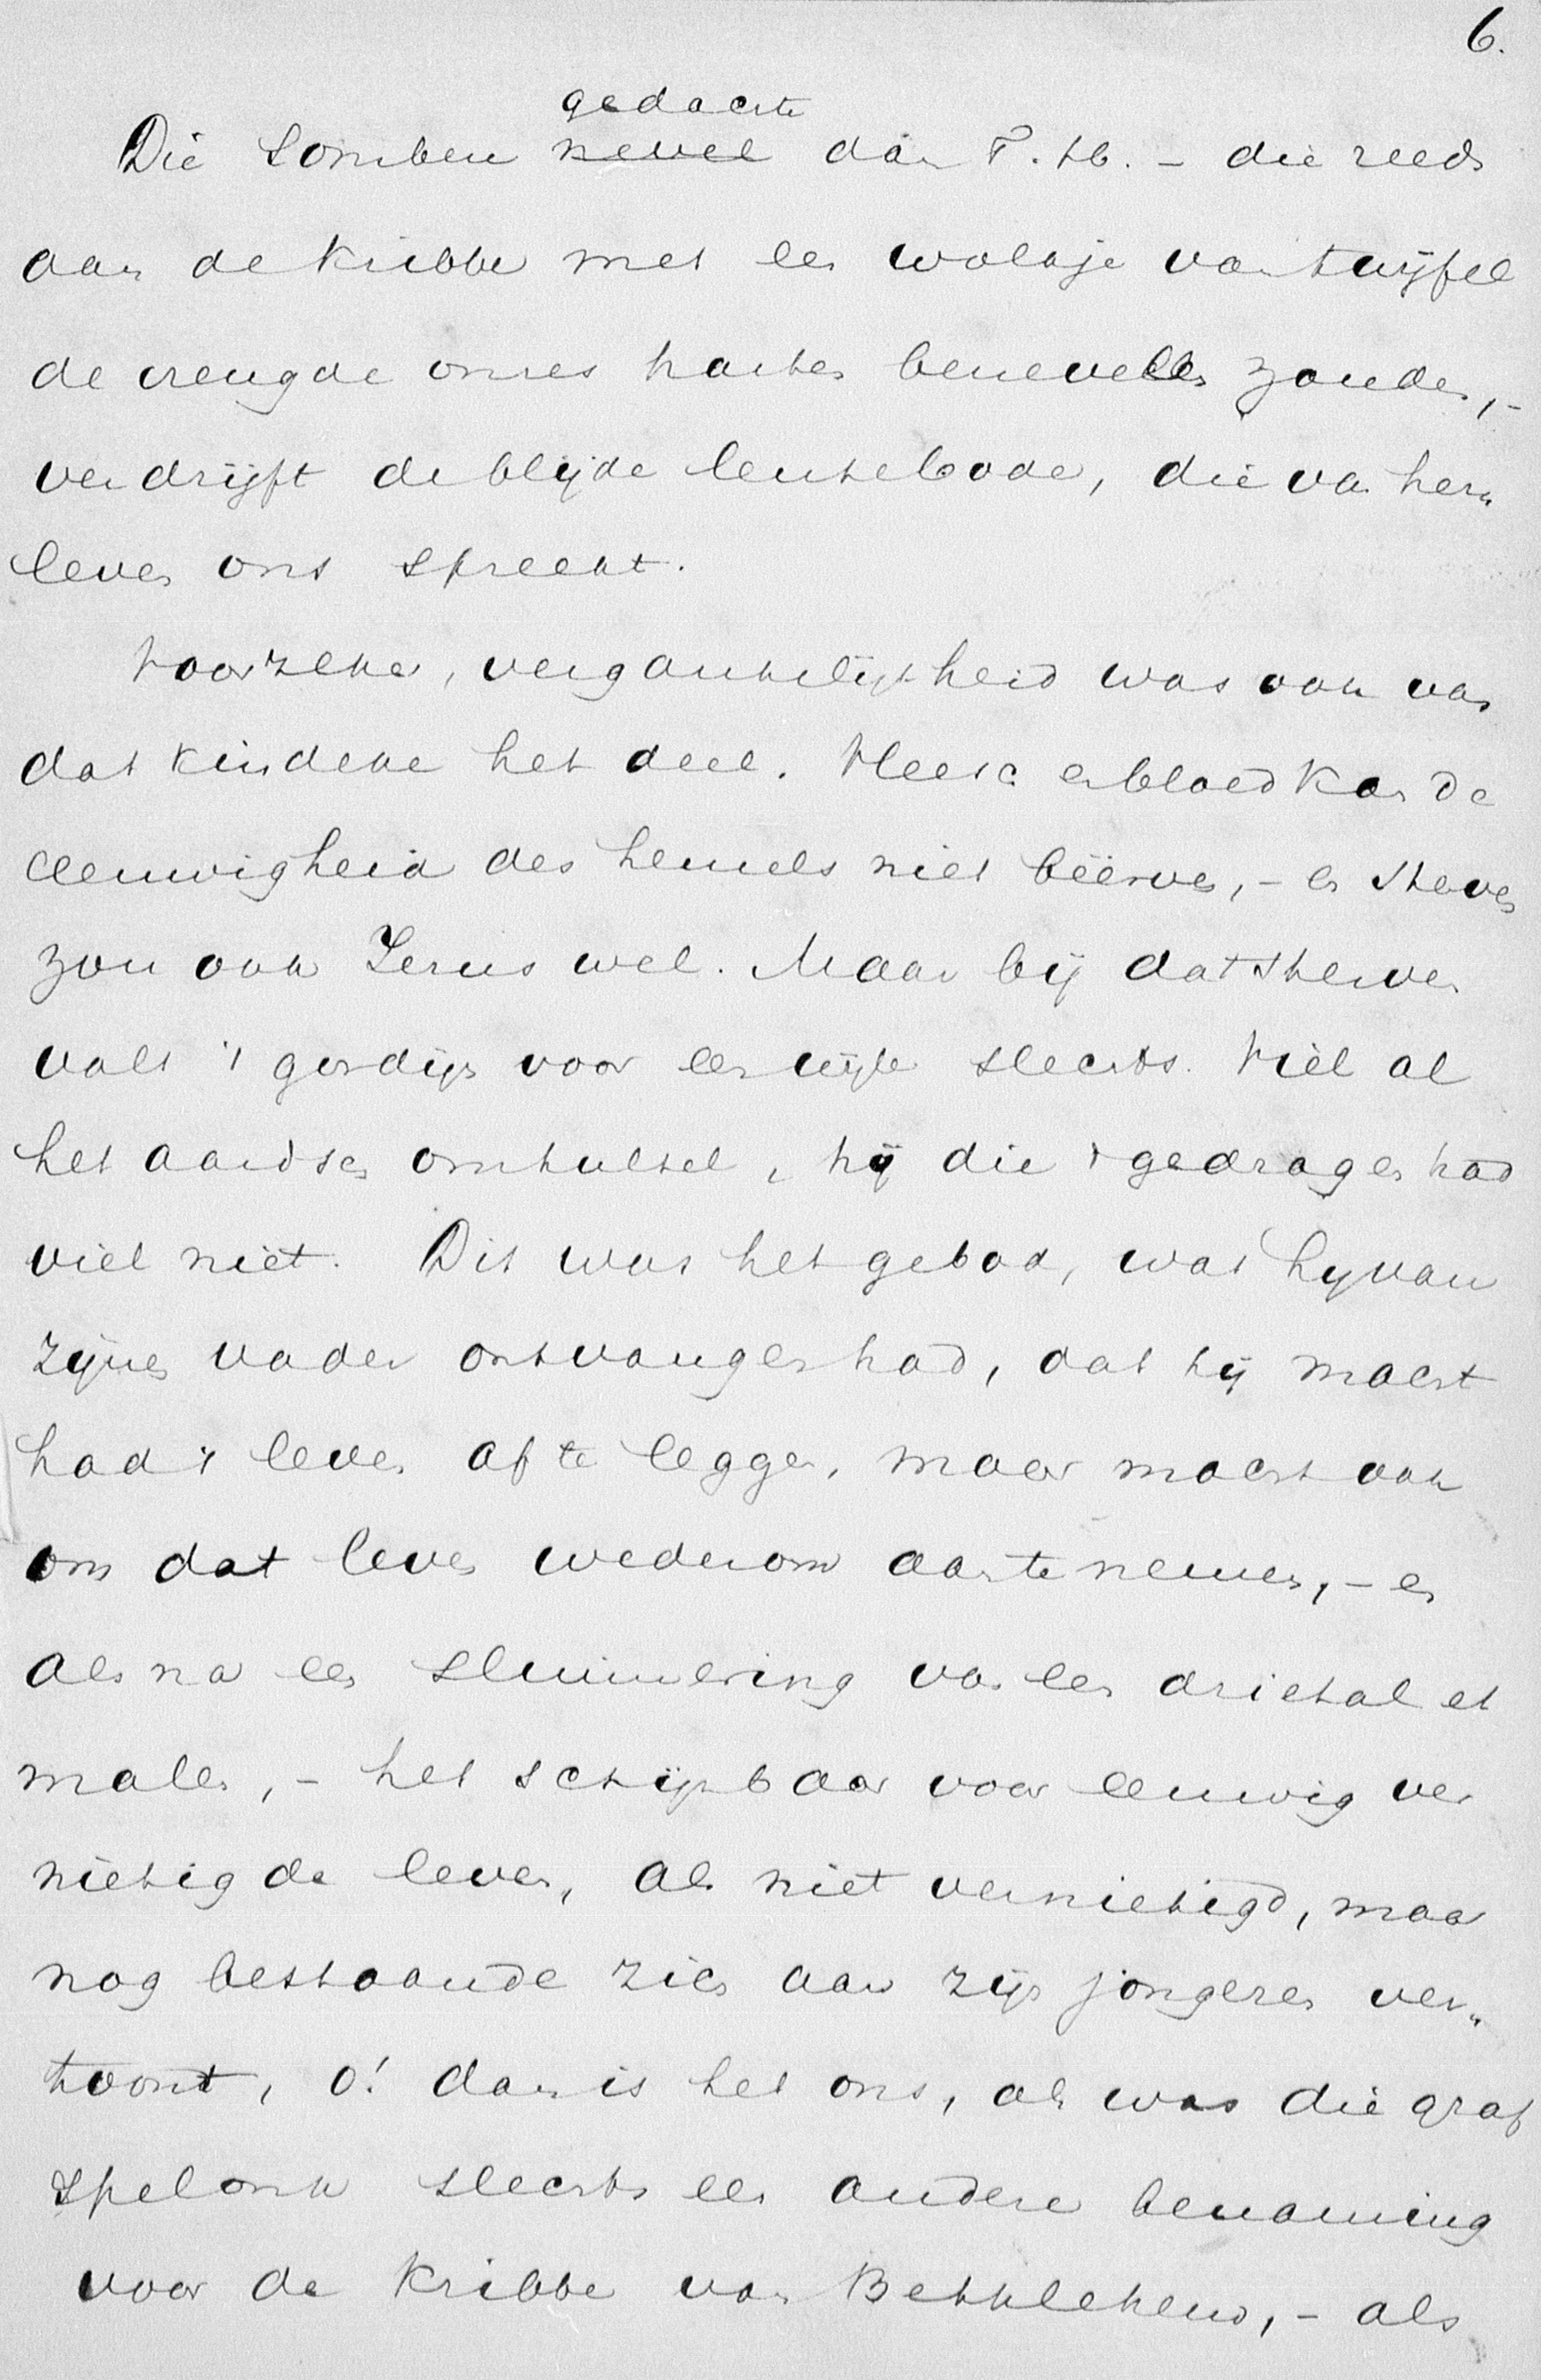 6.
gedachte
Die sombere nevel dan T. H. - die reeds
aan de kribbe met een wolkje van twijfel
de vreugde onzes harten benevelen zouden, -
verdrijft de blijde lentebode, die van her„
leven ons spreekt.
Voorzeker, vergankelijkheid was ook van
dat kindeke het deel. Vleesch en bloed kan de
eeuwigheid des hemels niet beërven, - en sterven
zou ook Jezus wel. Maar bij dat sterven
valt 't gordijn voor een wijle slechts. Viel al
het aardsch omhulsel, hij die 't gedragen had
viel niet. Dit was het gebod, wat hij van
zijnen vader ontvangen had, dat hij macht
had 't leven af te leggen, maar macht ook
om dat leven wederom aan te nemen, - en
als na een sluimering van een drietal et
malen, - het schijnbaar voor eeuwig ver
nietigde leven, als niet vernietigd, maar
nog bestaande zich aan zijn jongeren ver„
toont, o! dan is het ons, als was die graf
spelonk slechts een andere benaming
voor de kribbe van Bethlehem, - als